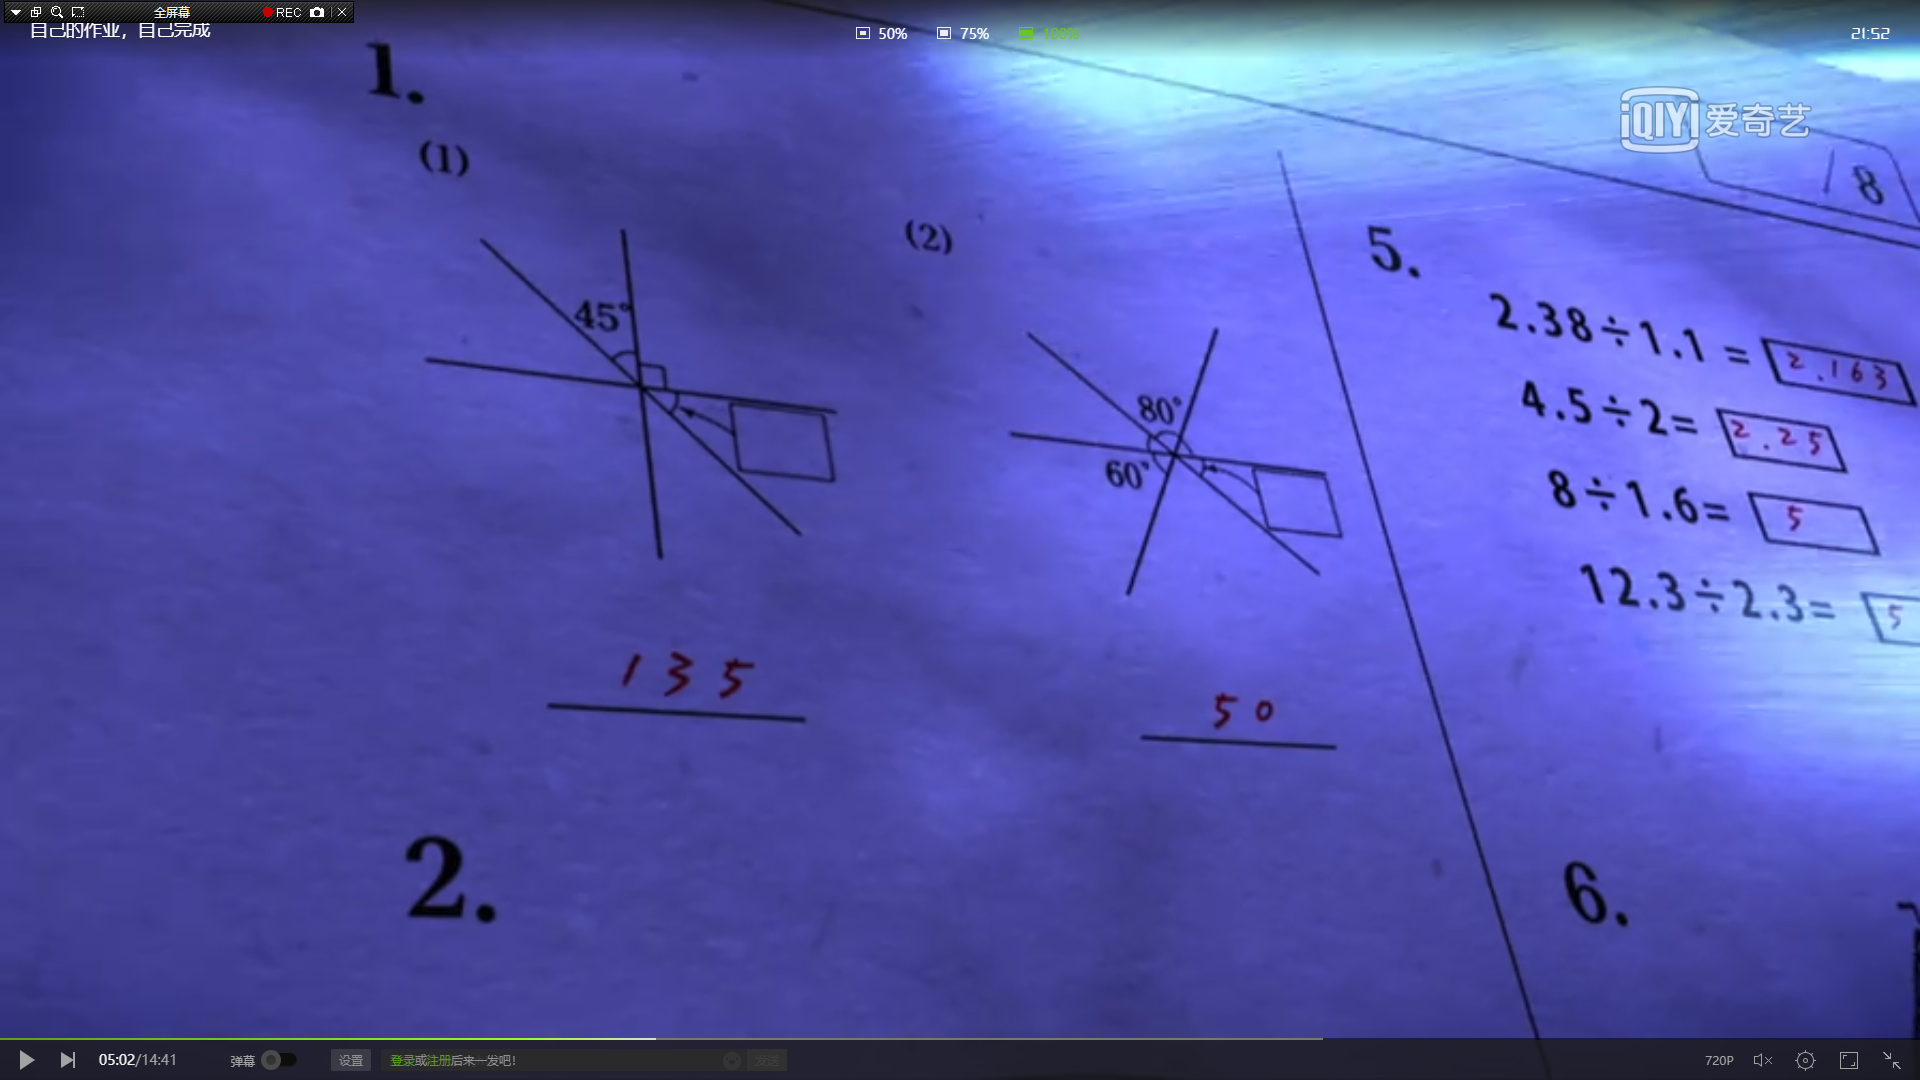 全屏幕 REC
自己的作业，自己完成
50% 75% 100%
21:52
iQIYI 爱奇艺
18
1.
(1)
45°
135
(2)
80°
60°
50
2.
5.
2.38÷1.1= 2.163
4.5÷2= 2.25
8÷1.6= 5
12.3÷2.3= 5
6.
05:02/14:41
弹幕
设置
登录或注册后来一发吧!
发送
720P